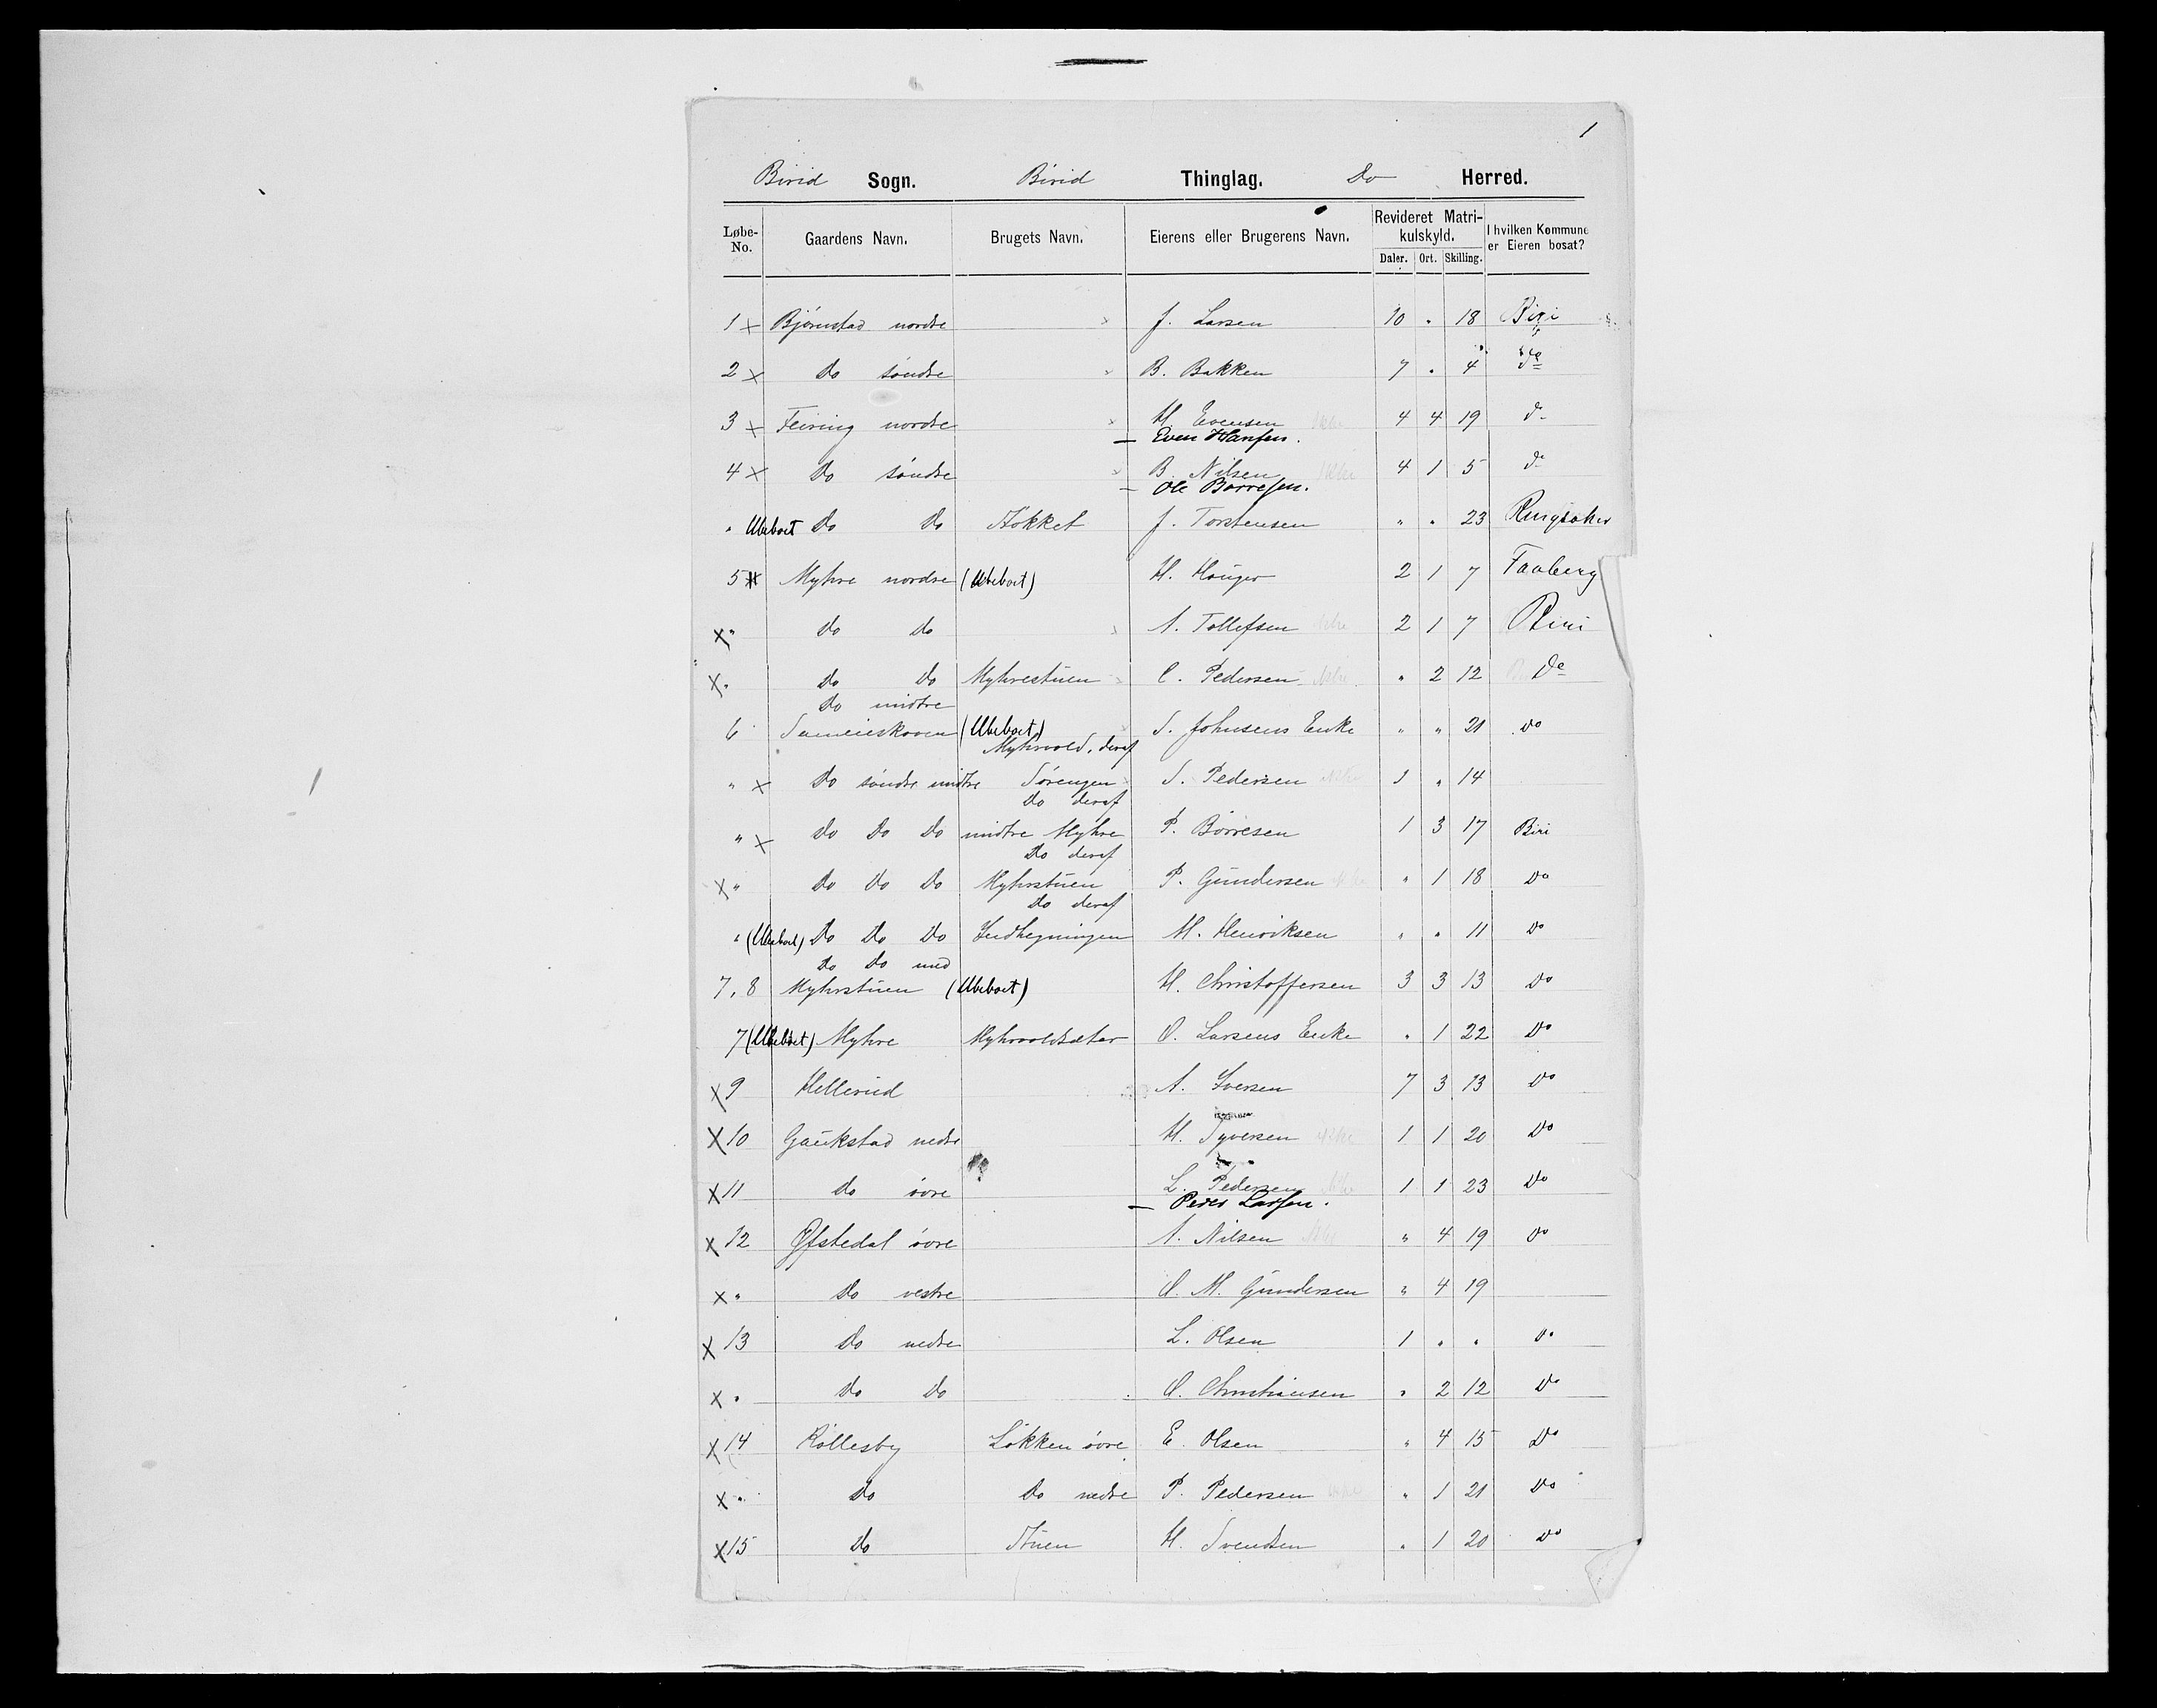 1
Birid Sogn. Birid Thinglag. Do Herred.
Løbe-No. Gaardens Navn. Brugets Navn. Eierens eller Brugerens Navn. Revideret Matrikulskyld. I hvilken Kommune er Eieren bosat?
Daler. Ort. Skilling.
1 x Bjørnstad nordre J. Larsen 10 . 18 Biri
2 x Do søndre B. Bakken 7 . 4 do
3 x Feiring nordre H. Evensen 4 4 19 do
— Even Hansen.
4 x Do søndre B. Nilsen 4 1 5 do
— Ole Børresen.
" Ubeboet Do Do Stokket J. Torstensen " . 23 Ringsaker
5 x Myhre nordre (Ubeboet) H. Haugen 2 1 7 Faaberg
x " Do Do A. Tollefsen 2 1 7 Biri
x " Do Do Myhrestuen C. Pedersen " 2 12 Do
Do midtre
6 Sameieskoven (Ubeboet) S. Johnsens Enke " " 21 Do
Myhrvold, deraf
" x Do søndre midtre Sørengen S. Pedersen 1 " 14
Do deraf
" x Do Do Do midtre Myhre P. Børresen 1 3 17 Biri
Do deraf
x " Do Do Do Myhrstuen P. Gundersen " 1 18 Do
Do deraf
" (Ubeboet) Do Do Do Indhegningen M. Henriksen " " 11 Do
Do Do med
7, 8 Myhrstuen (Ubeboet) H. Christoffersen 3 3 13 Do
7 (Ubeboet) Myhre Myhrvoldsæter O. Larsens Enke " 1 22 Do
x 9 Hellerud A. Iversen 7 3 13 Do
x 10 Gaukstad nedre H. Syversen 1 1 20 Do
x 11 do øvre L. Pedersen 1 1 23 Do
— Peder Larsen.
x 12 Øfstedal øvre A. Nilsen " 4 19 Do
x " Do vestre O. M. Gundersen " 4 19
x 13 Do nedre L. Olsen 1 . . Do
x " Do Do O. Christiansen " 2 12 Do
x 14 Kollesby Løkken øvre E. Olsen " 4 15 Do
x " Do Do nedre P. Pedersen " 1 21 Do
x 15 Do Stuen H. Svendsen " 1 20 Do